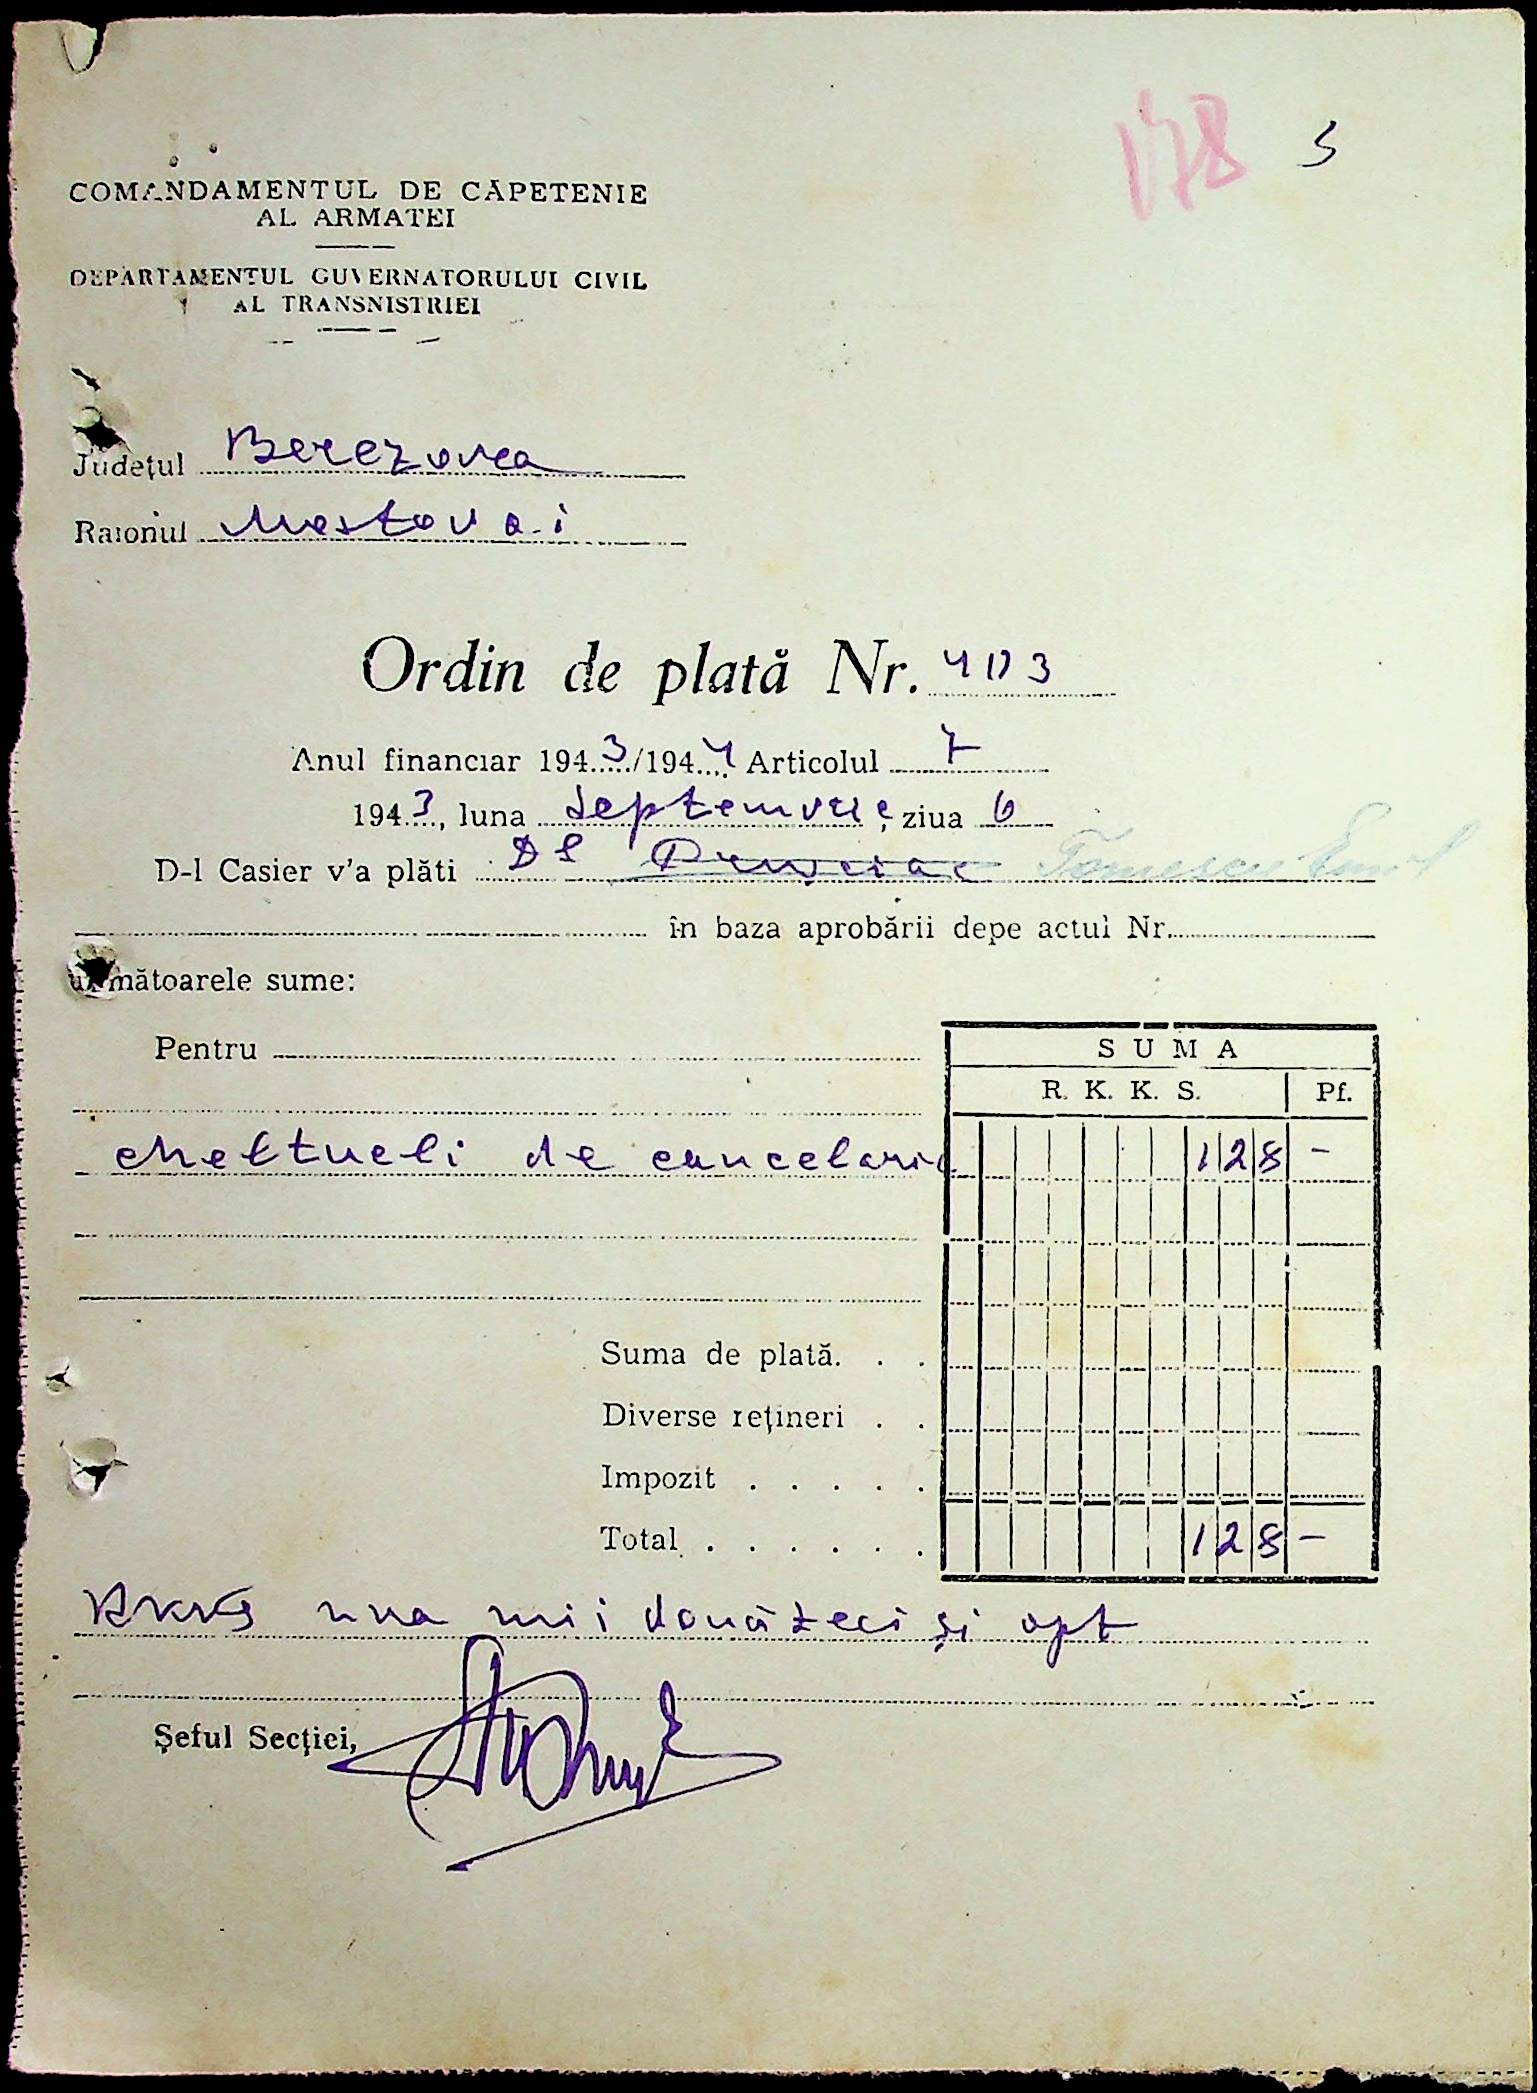 178 5
COMANDAMENTUL DE CĂPETENIE
AL ARMATEI
DEPARTAMENTUL GUVERNATORULUI CIVIL
AL TRANSNISTRIEI
Județul Berezovca
Raionul Mostovoi
Ordin de plată Nr. 403
Anul financiar 1943/1944 Articolul 7
1943, luna Septemvrie, ziua 6
D-l Casier v'a plăti Dl Tomescu Emil
în baza aprobării depe actul Nr.
următoarele sume:
Pentru
SUMA
R. K. K. S. Pf.
cheltueli de cancelarie 128 -
Suma de plată. . .
Diverse rețineri . .
Impozit . . . . .
Total . . . . . . 128 -
RKKS una mii douăzeci și opt
Șeful Secției,